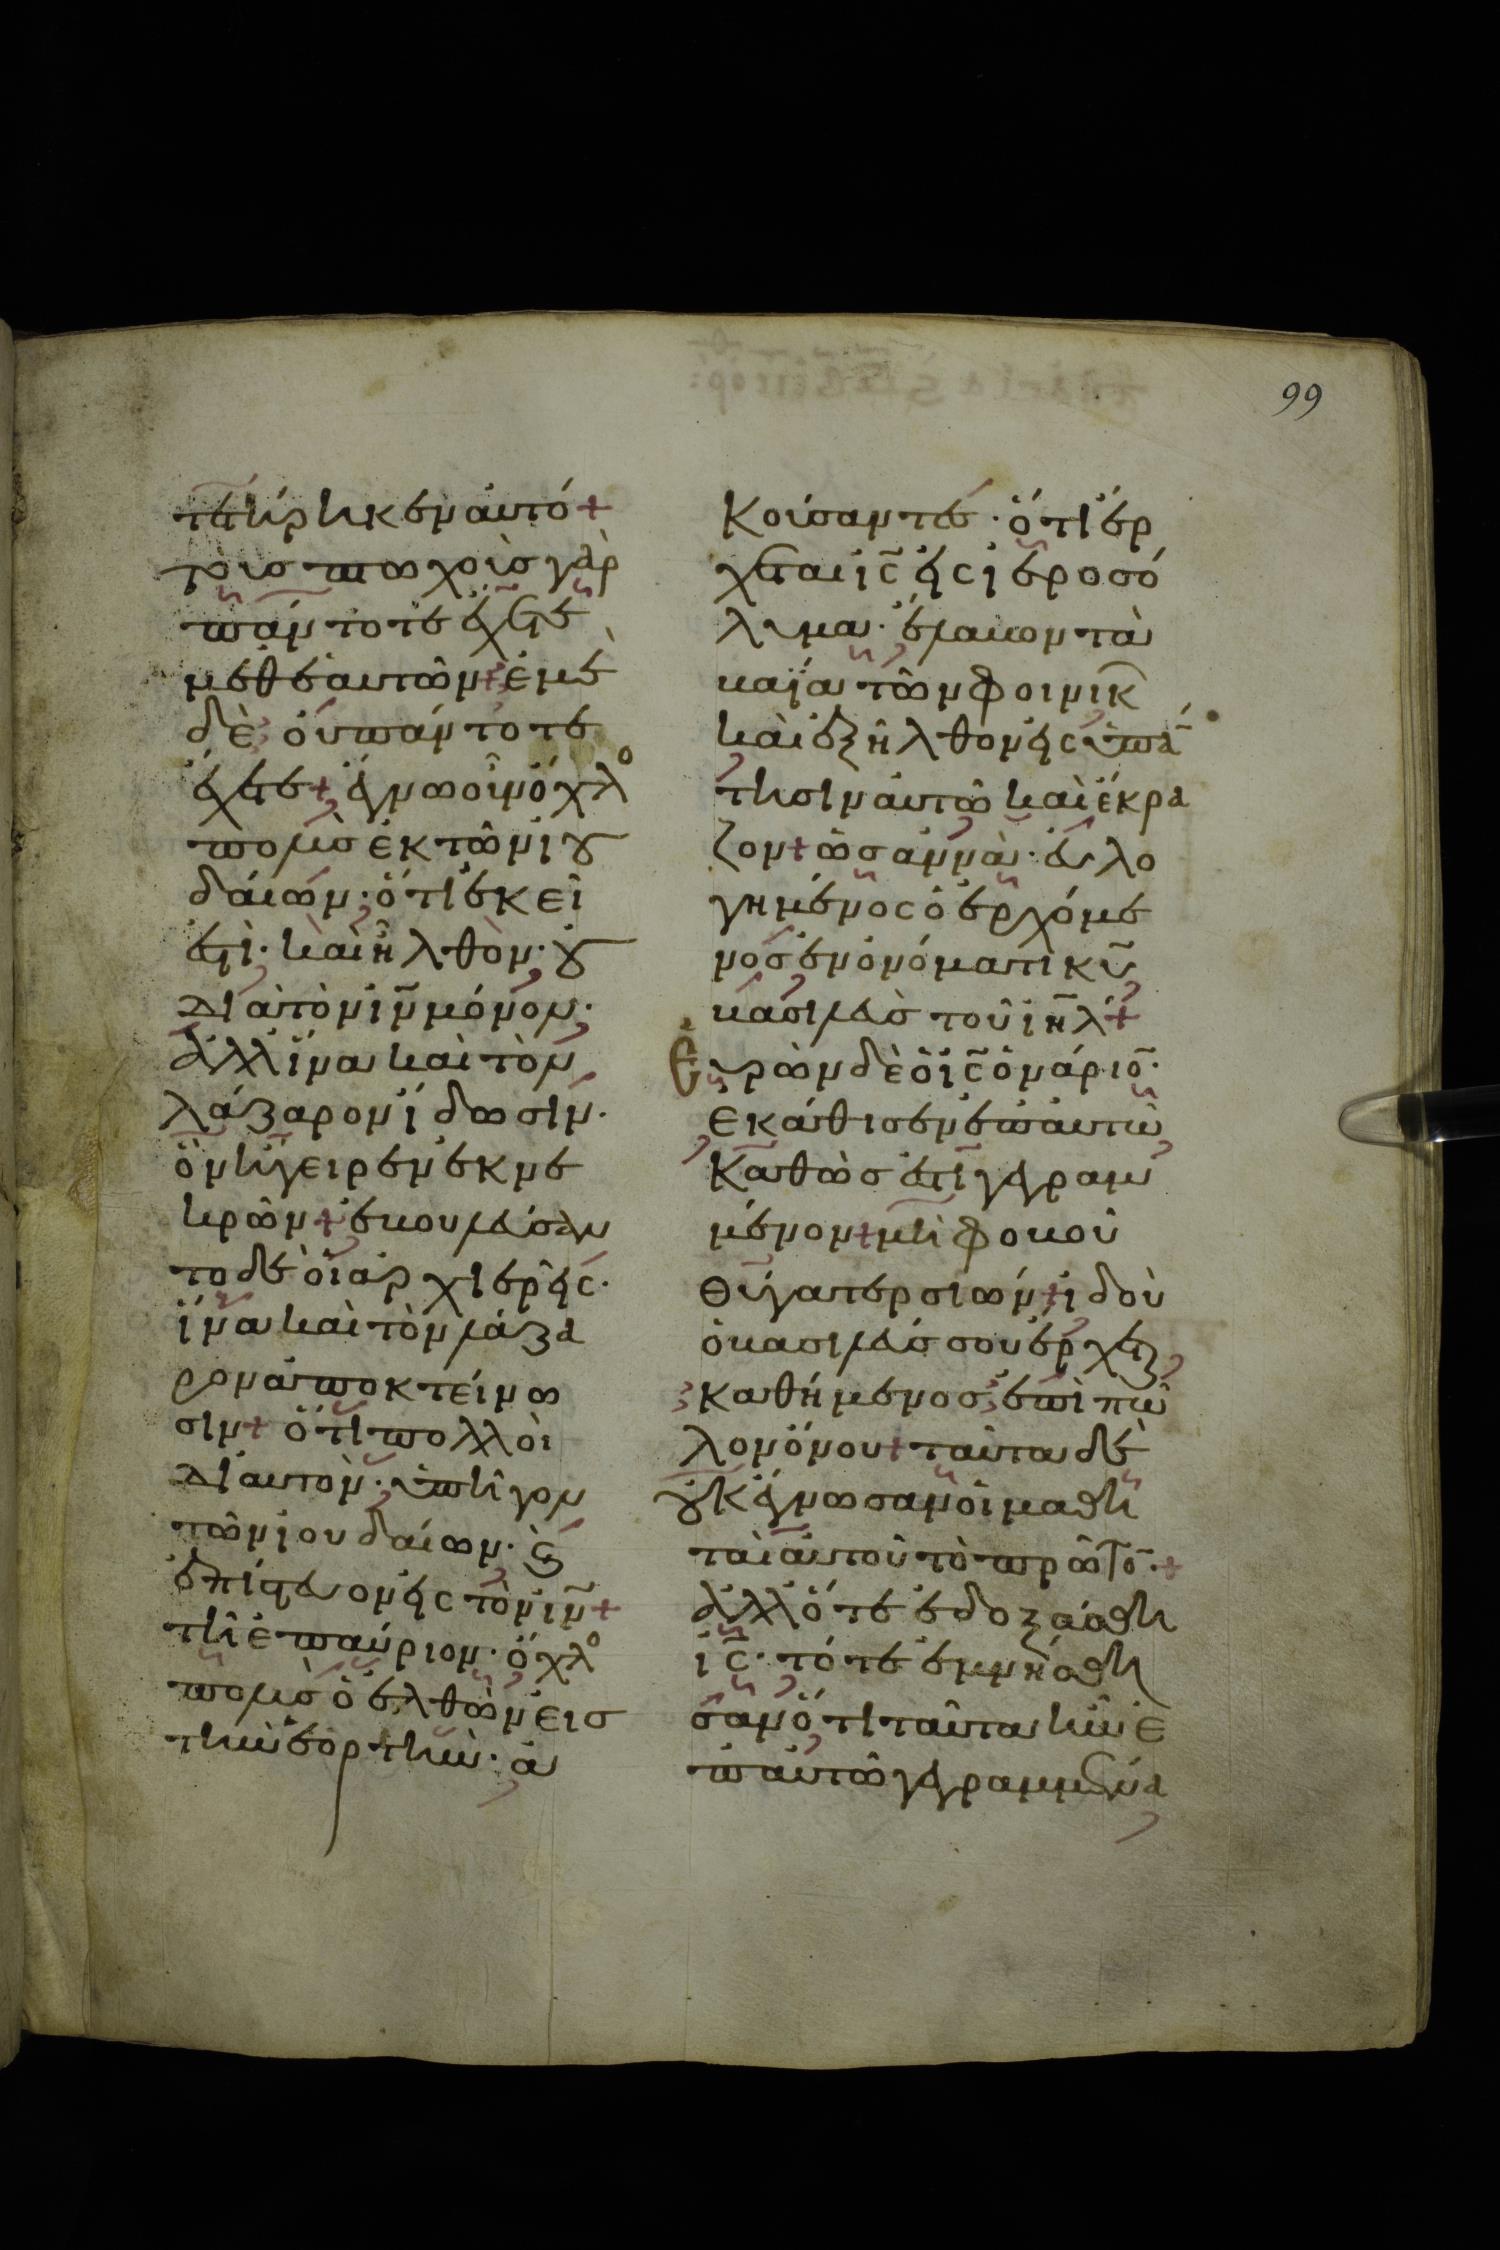 99
τετήρηκεν αὐτό +
τοὺς πτωχοὺς γὰρ
πάντοτε ἔχετε
μεθ ἑαυτῶν + ἐμὲ
δὲ οὐ πάντοτε
ἔχετε + ἔγνω οὖν ὄχλο
πολὺς ἐκ τῶν ἰου
δαίων · ὅτι ἐκεῖ
ἐστὶ · καὶ ἦλθον · οὐ
διὰ τὸν ιν̅ μόνον ·
ἀλλ ἵνα καὶ τὸν
λάζαρον ἴδωσιν ·
ὃν ἤγειρεν ἐκ νε
κρῶν + ἐβουλεύσαν
το δὲ οἱ ἀρχιερεῖς ·
ἵνα καὶ τὸν λάζα
ρον ἀποκτείνω
σιν + ὅτι πολλοὶ
δι αὐτὸν · ὑπῆγον
τῶν ἰουδαίων · καὶ
ἐπίστευον εἰς τὸν ιν̅ +
τῇ ἐπαύριον · ὄχλο
πολὺς ὁ ἐλθὼν εἰς
τὴν ἑορτὴν · ἀ
κούσαντες · ὅτι ἔρ
χεται ις̅ εἰς ἱεροσό
λυμα · ἔλαβον τὰ
βαΐα τῶν φοινίκ
καὶ ἐξῆλθον εἰς ὑπά
τησιν αὐτῶ καὶ ἔκρα
ζον + ὡσαννὰ · εὐλο
γημένος ὁ ἐρχόμε
νος ἐν ὀνόματι κυ̅
βασιλεὺς τοῦ ιη̅λ +
Εὑρὼν δὲ ὁ ις̅ ὀνάριο̅ ·
ἐκάθισεν ἐπ αὐτὼ
καθὼς ἐστὶ γεγραμ
μένον + μὴ φοβοῦ
θύγατερ σιών + ἰδοὺ
ὁ βασιλεύς σου ἔρχεται
καθήμενος ἐπὶ πῶ
λον ὄνου + ταῦτα δὲ
οὐκ ἔγνωσαν οἱ μαθη
ταὶ αὐτοῦ τὸ πρῶτο̅ · +
ἀλλ ὅτε ἐδοξάσθη
ις̅ · τότε ἐμνήσθη
σαν ὅτι ταῦτα ἦν ἐ
π αὐτῶ γεγραμμένα